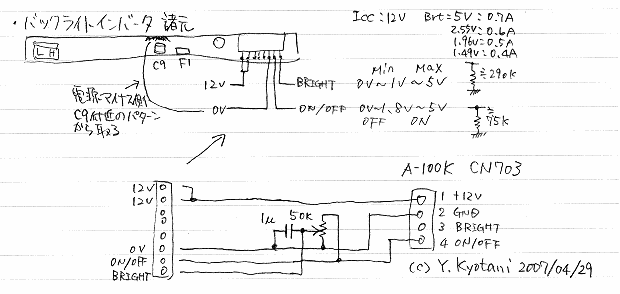 ・バックライトインバータ 諸元
Icc:12V Brt=5V:0.7A
2.55V:0.6A
1.96V:0.5A
1.49V:0.4A
L H
C9 F1
Min Max
12V
BRIGHT 0V~1V~5V ≒290k
電源マイナス側
C9付近のパターン
から取る
0V
ON/OFF 0V~1.8V~5V ≒75k
OFF ON
A-100K CN703
12V
12V
1μ 50K
1 +12V
2 GND
3 BRIGHT
4 ON/OFF
0V
ON/OFF
BRIGHT
(c) Y. Kyotani 2007/04/29